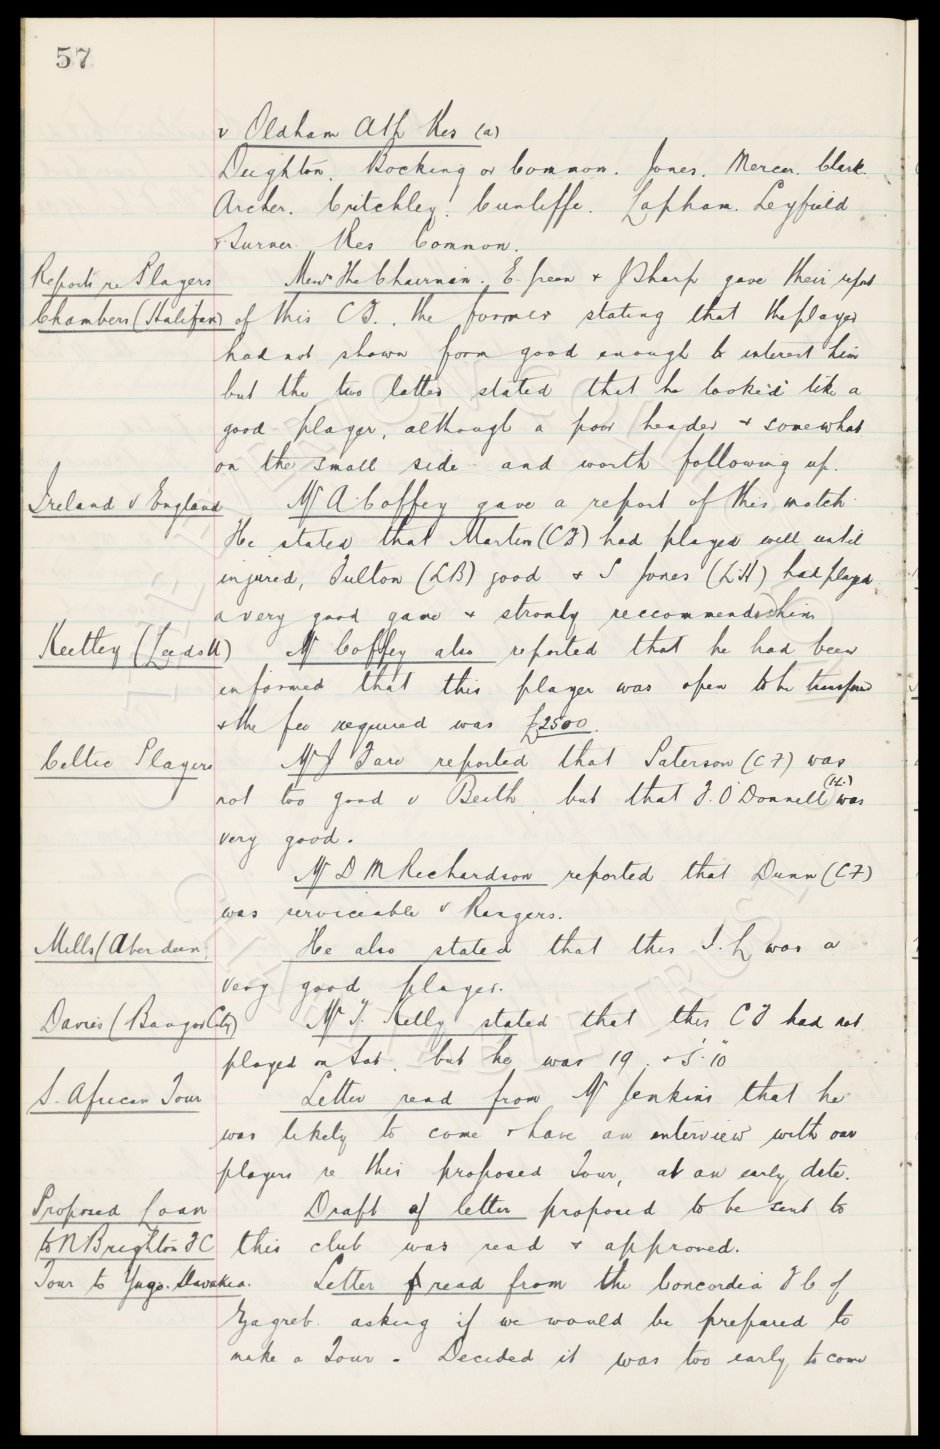 57
v Oldham Ath Res (a)
Deighton. Bocking or Common. Jones. Mercer. Clark.
Archer. Critchley. Cunliffe. Lapham. Leyfield
& Turner. Res Common.
Reports re Players Messrs The Chairman. E. Green & J Sharp gave their report
Chambers (Halifax) of this CF. the former stating that the player
had not shown form good enough to interest him
but the two latter stated that he looked like a
good player, although a poor header & somewhat
on the small side and worth following up.
Ireland v England Mr A Coffey gave a report of this match
He stated that Martin (CF) had played well until
injured, Fulton (LB) good & S Jones (LH) had played
a very good game & stronly reccommends him
Keetley (Leeds U) Mr Coffey also reported that he had been
informed that this player was open to be transferred
& the fee required was £2500.
Celtic Players Mr J Fare reported that Paterson (CF) was
not too good v Beith, but that F. O'Donnell (I.L.) was
very good.
Mr D M Richardson reported that Dunn (CF)
was serviceable v Rangers.
Mills (Aberdeen) He also stated that this I.L was a
very good player.
Davies (Bangor City) Mr T. Kelly stated that this CF had not
played on Sat. but he was 19. & 5'.10"
S. African Tour Letter read from Mr Jenkins that he
was likely to come & have an interview with our
players re this proposed Tour, at an early date.
Proposed Loan Draft of letter proposed to be sent to
to N Brighton FC this club was read & approved.
Tour to Yugo. Slavakia. Letter read from the Concordia FC of
Zagreb. asking if we would be prepared to
make a Tour - Decided it was too early to come